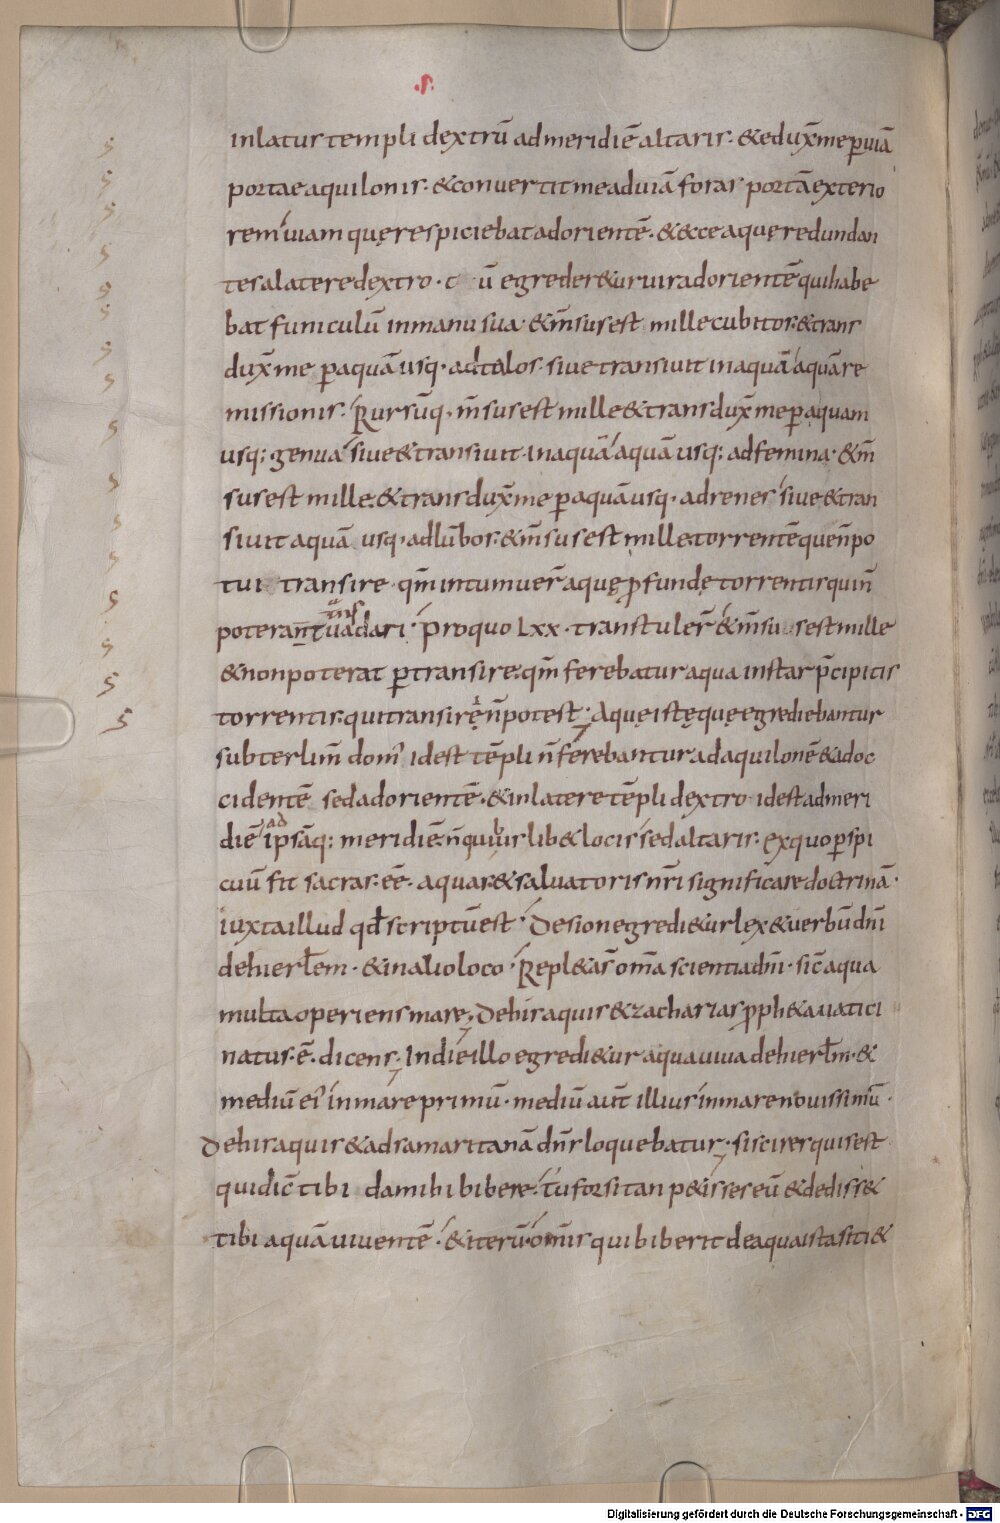 .S.
inlatus templi dextrū admeridiē altaris· &eduxᷓme ꝑuiā
portae aquilonis· &conuertit me aduiā foras portā exterio
rem uiam quę respiciebat ad orientē· &ecce aquę redundan
tes alatere dextro· c ū egreder&ur uir ad orientē qui habe
bat funiculū inmanu sua· &m̄sus est mille cubitos· &trans
dux̄ me ꝑ aquā usq· ad talos· siue transiuit inaquā aquā re
missionis· Rursūq· m̄sus est mille &transdux̄ me ꝑ aquam
usq; genua siue &transiuit inaquā aquā usq; ad femina· &m̄
sus est mille· &transdux̄ me ꝑ aquā usq· ad renes siue &tran
siuit aquā usq· adlūbos· &m̄sus est mille torrentē quen̄ po
tui transire· qm̄ intumuer̄ aquę ꝓfundę torrentis qui n̄
poterant uadari· Pro quo Lxx· transtuler̄ &m̄su sest mille
&non poterat ꝑtransire· qm̄ ferebatur aqua instar p̄cipitis
torrentis· qui transirę n̄ potest· Aquę istę quę egrediebantur
subter lim̄ dom' idest tēpli n̄ ferebantur ad aquilonē &ad oc
cidentē sed ad orientē· &in latere tēpli dextro idest ad meri
diē ad ipsāq; meridiē· n̄ quibus lib& locis sed altaris· exquo ꝑspi
cuū fit sacras· eē· aquas· &saluatoris nr̄i significare doctrinā·
iuxta illud qd̄ scriptū est· De sion egredi&ur lex &uerbū dn̄i
de hierl̄em· &in alio loco· Repl&a ē om̄a scientia dn̄i· sic̄ aqua
multa operiens mare; De his aquis &zacharias ꝓph&a uatici
natus· ē· dicens· Indie illo egredi&ur aqua uiua de hierl̄m· &
mediū ei' in mare primū· mediū aut̄ illius in mare nouissimū·
De his aquis &ad samaritanā dn̄s loquebatur· si scires quis est
qui dic̄ tibi da mihi bibere· tu forsitan p&isses eū &dediss&
tibi aquā uiuentē· &iterū· om̄is qui biberit de aqua ista siti&
Digitalisierung gefördert durch die Deutsche Forschungsgemeinschaft - DFG